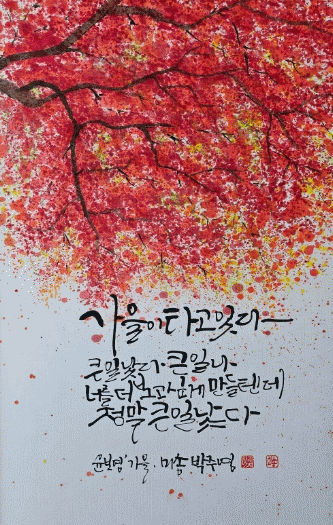 가을이 타고 있다
큰일났다. 큰일나
너를 더 보고싶게 만들텐데
정말 큰일났다
윤보영 '가을' . 미송 박주영